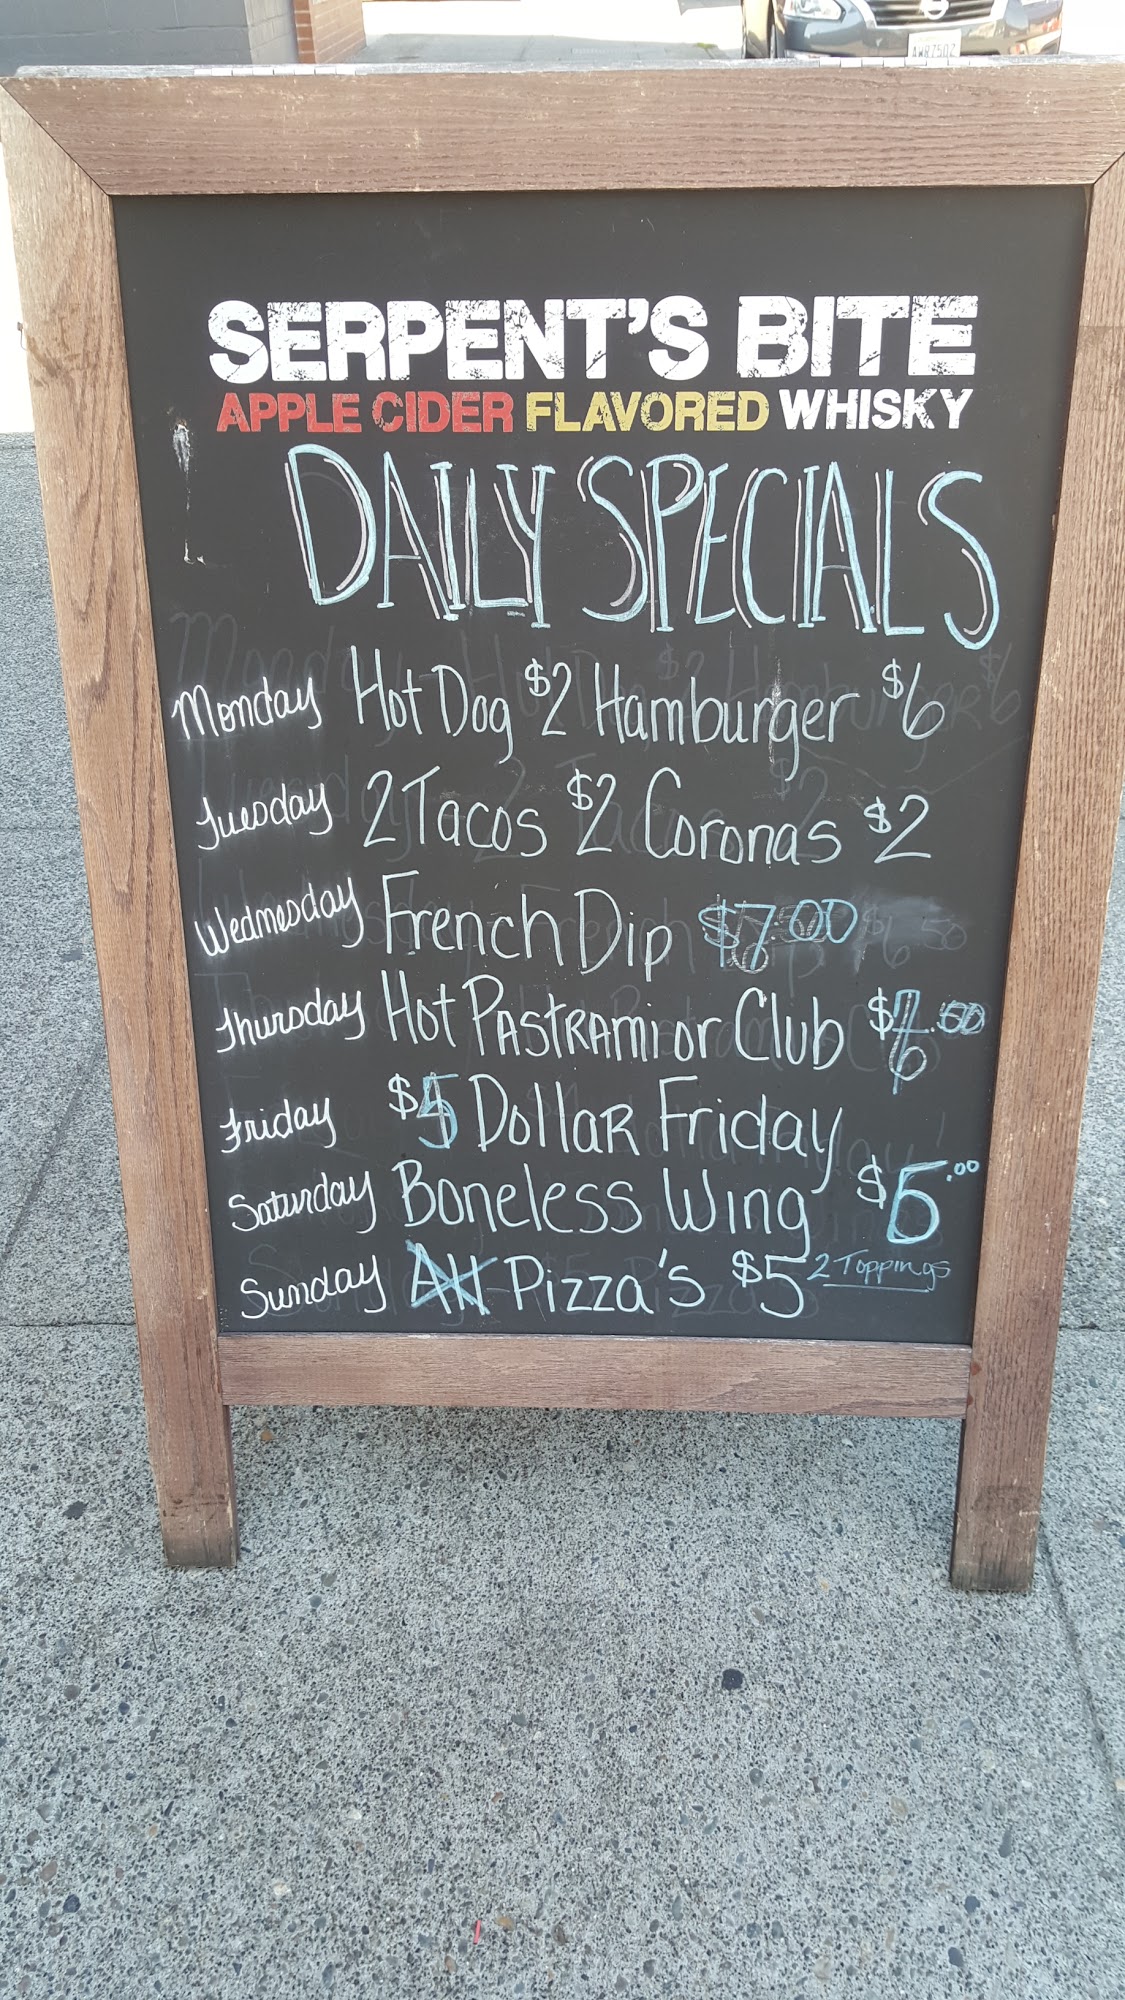 AWR7502
SERPENT'S BITE
APPLE CIDER FLAVORED WHISKY
DAILY SPECIALS
Monday Hot Dog $2 Hamburger $6
Tuesday 2 Tacos $2 Coronas $2
Wednesday French Dip $7.00
Thursday Hot Pastrami or Club
Friday $5 Dollar Friday
Saturday Boneless Wing
Sunday All Pizza's $5 2 Toppings